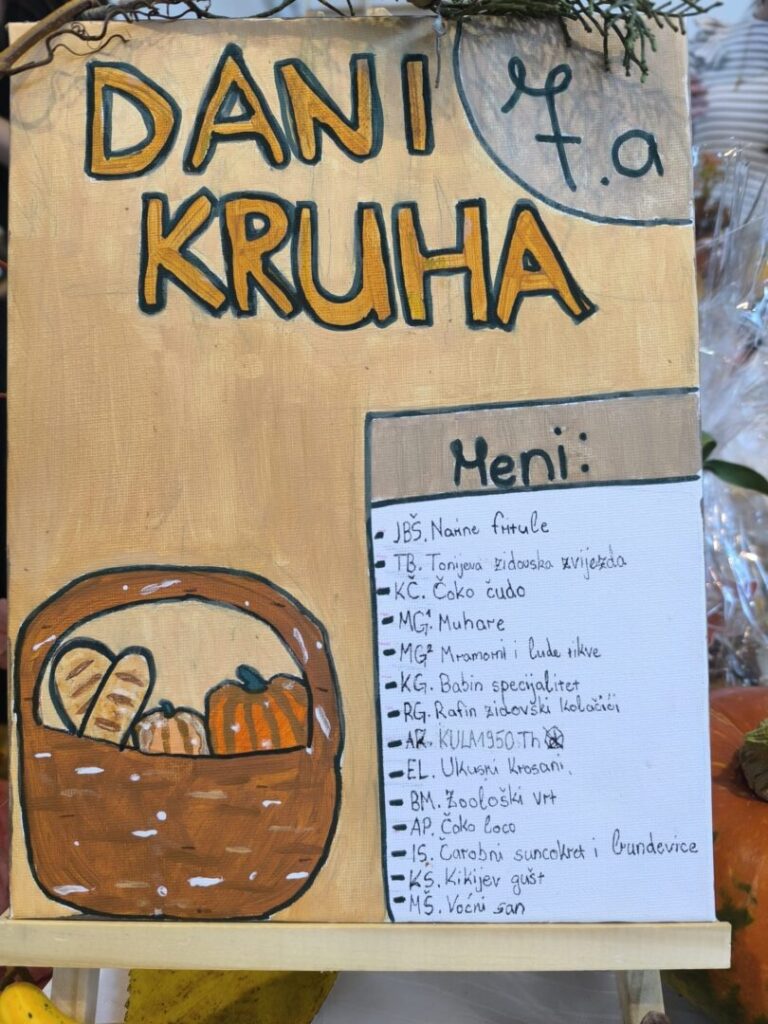 DANI
7.a
KRUHA
Meni:
- JBŠ. Naine fritule
- TB. Tonijeva židovska zvijezda
- KČ. Čoko čudo
- MG¹. Muhare
- MG² Mramorni i lude tikve
- KG. Babin specijalitet
- RG. Rafin židovski kolačići
- AR. KULM950.Th
- EL. Ukusni krosani.
- BM. Zoološki vrt
- AP. Čoko loco
- IS. Čarobni suncokret i bundevice
- KS. Kikijev gušt
- MŠ. Voćni san